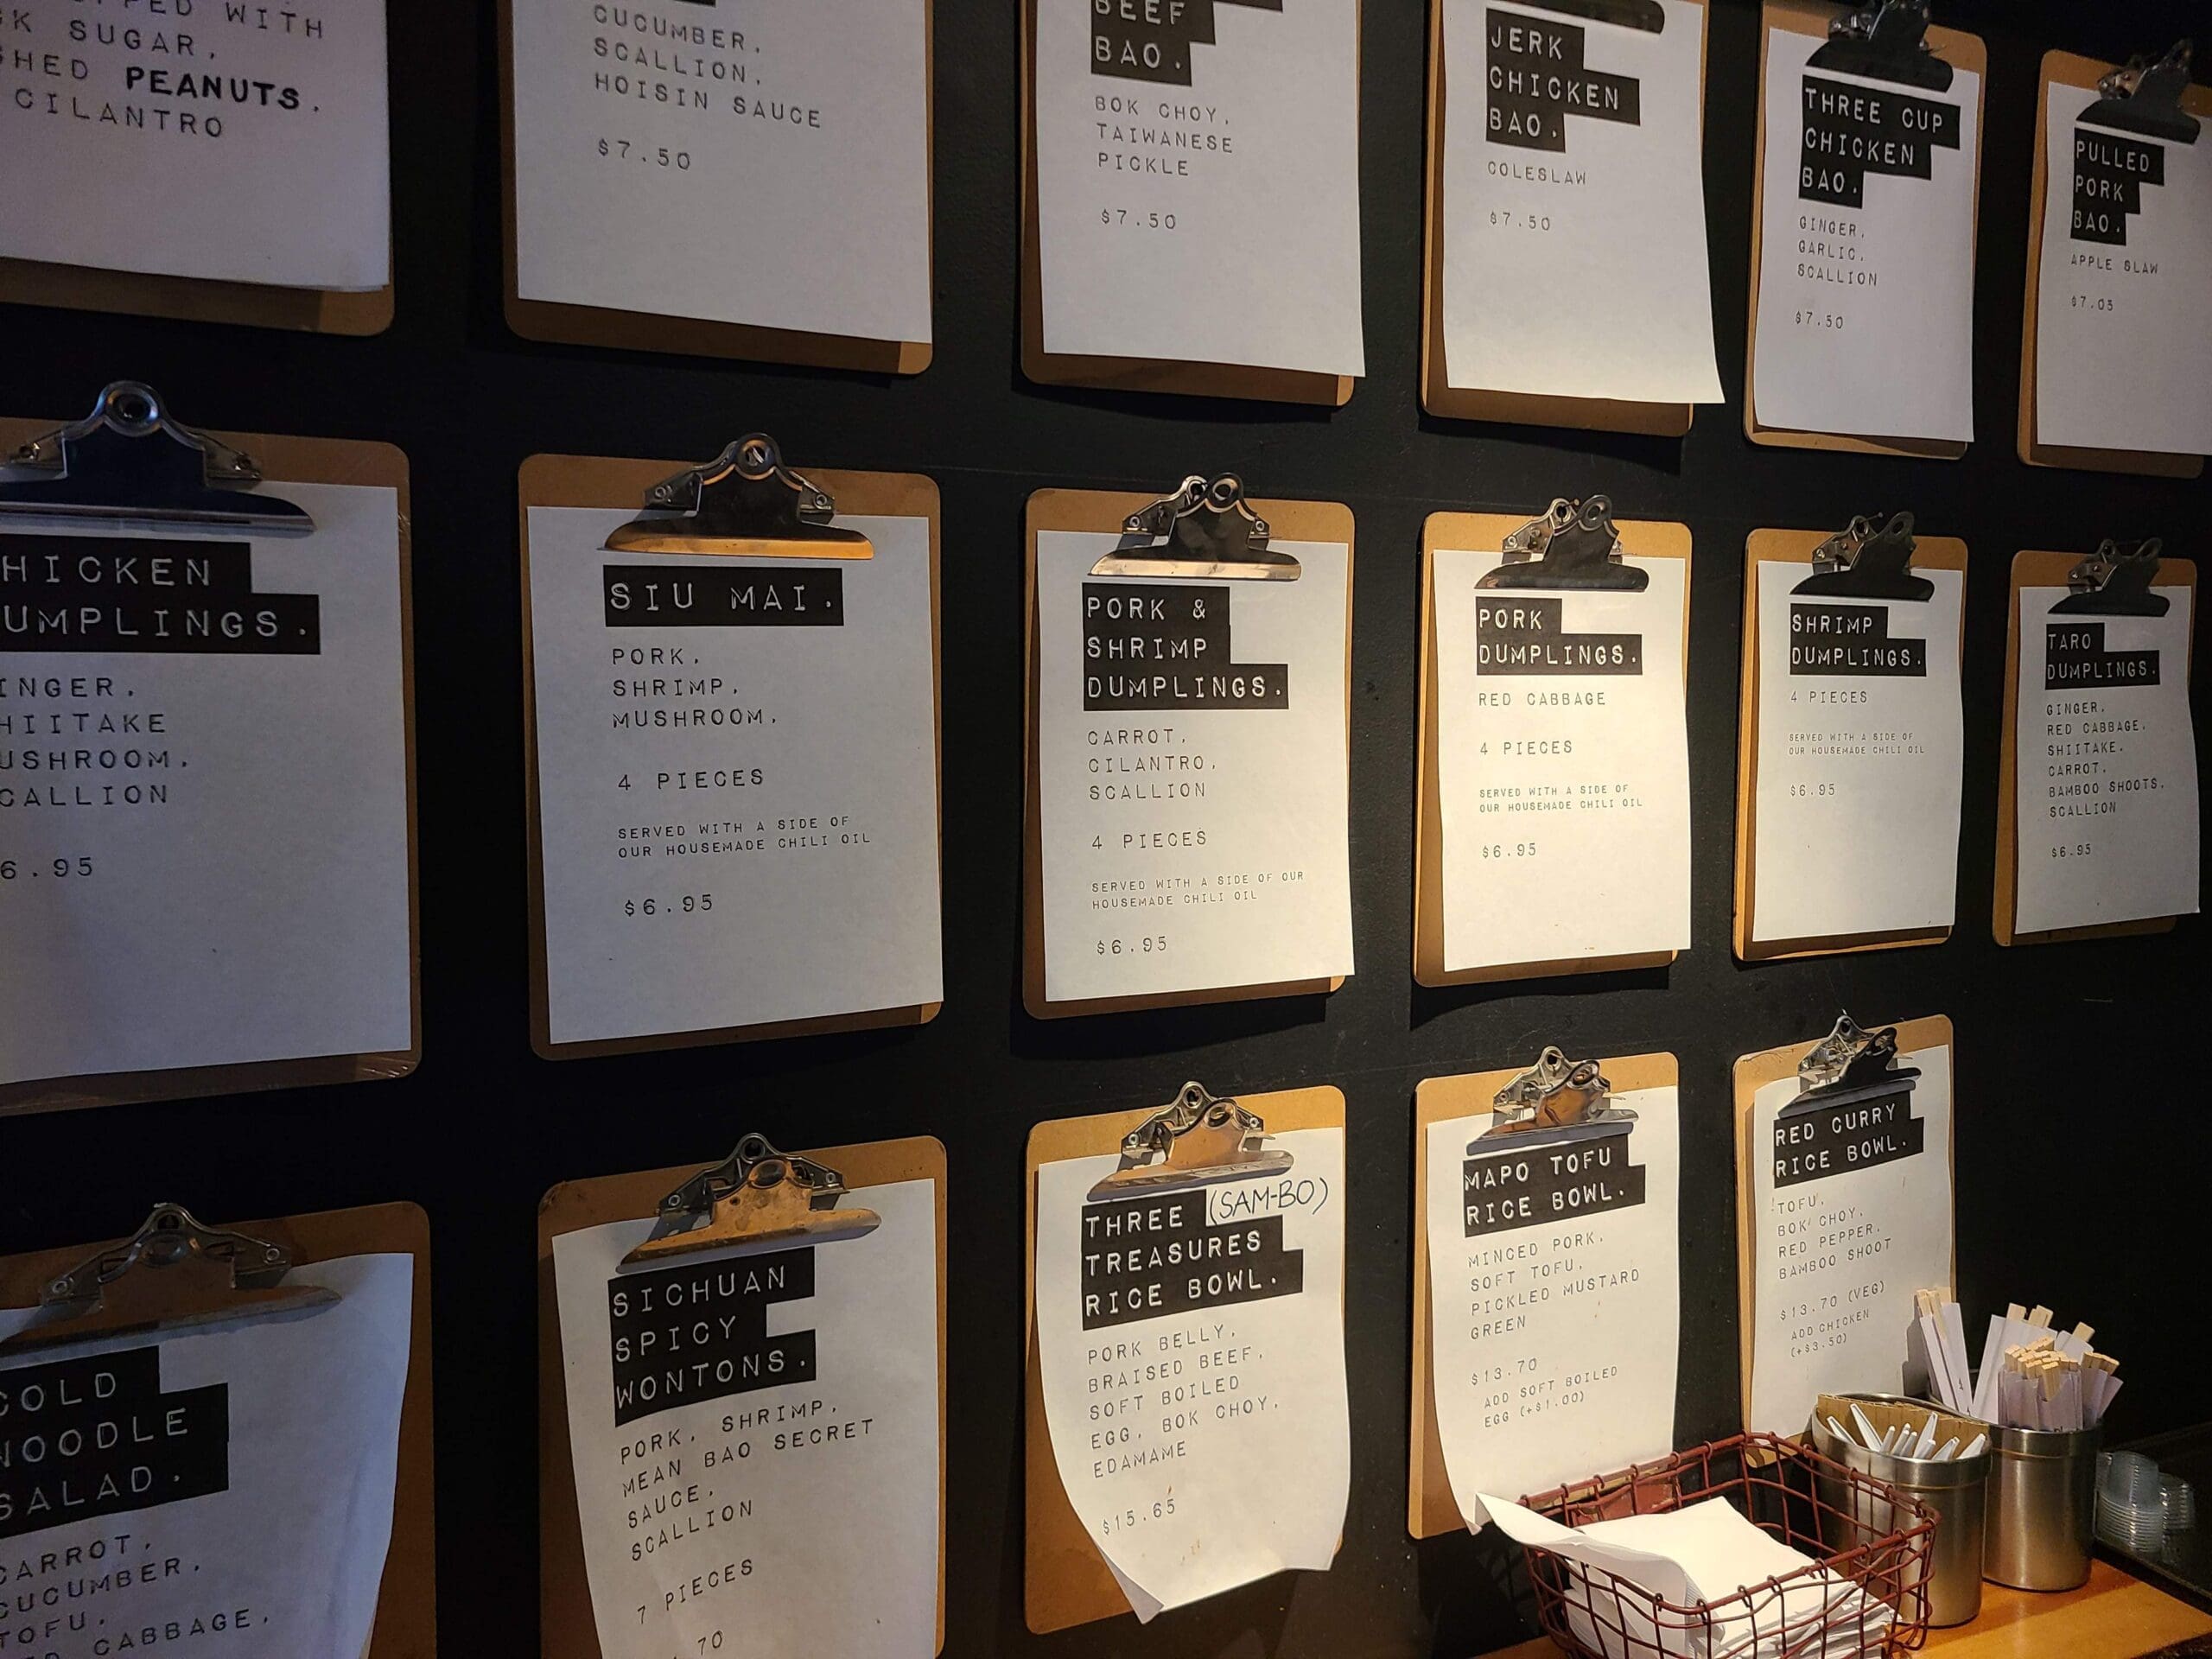 WITH
SUGAR,
PEANUTS.
CILANTRO
CUCUMBER,
SCALLION,
HOISIN SAUCE
$7.50
BEEF
BAO.
BOK CHOY,
TAIWANESE
PICKLE
$7.50
JERK
CHICKEN
BAO.
COLESLAW
$7.50
THREE CUP
CHICKEN
BAO.
GINGER,
GARLIC,
SCALLION
$7.50
PULLED
PORK
BAO.
APPLE SLAW
$7.05
HICKEN
UMPLINGS.
INGER,
HIITAKE
USHROOM,
CALLION
6.95
SIU MAI.
PORK,
SHRIMP,
MUSHROOM,
4 PIECES
SERVED WITH A SIDE OF
OUR HOUSEMADE CHILI OIL
$6.95
PORK &
SHRIMP
DUMPLINGS.
CARROT,
CILANTRO,
SCALLION
4 PIECES
SERVED WITH A SIDE OF OUR
HOUSEMADE CHILI OIL
$6.95
PORK
DUMPLINGS.
RED CABBAGE
4 PIECES
SERVED WITH A SIDE OF
OUR HOUSEMADE CHILI OIL
$6.95
SHRIMP
DUMPLINGS.
4 PIECES
SERVED WITH A SIDE OF
OUR HOUSEMADE CHILI OIL
$6.95
TARO
DUMPLINGS.
GINGER,
RED CABBAGE,
SHIITAKE,
CARROT,
BAMBOO SHOOTS,
SCALLION
$6.95
COLD
NOODLE
SALAD.
CARROT,
CUCUMBER,
TOFU,
CABBAGE,
SICHUAN
SPICY
WONTONS.
PORK, SHRIMP,
MEAN BAO SECRET
SAUCE,
SCALLION
7 PIECES
70
THREE (SAM-BO)
TREASURES
RICE BOWL.
PORK BELLY,
BRAISED BEEF,
SOFT BOILED
EGG, BOK CHOY,
EDAMAME
$15.65
MAPO TOFU
RICE BOWL.
MINCED PORK,
SOFT TOFU,
PICKLED MUSTARD
GREEN
$13.70
ADD SOFT BOILED
EGG (+$1.00)
RED CURRY
RICE BOWL.
TOFU,
BOK CHOY,
RED PEPPER,
BAMBOO SHOOT
$13.70 (VEG)
ADD CHICKEN
(+$3.50)